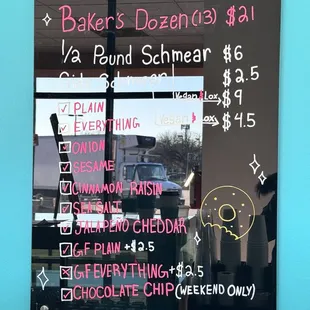 Baker's Dozen (13) $21
1/2 Pound Schmear $6
Side Schmear! $2.5
Vegan & Lox → $9
Vegan & → $4.5
PLAIN
EVERYTHING
ONION
SESAME
CINNAMON RAISIN
SEA SALT
JALAPEÑO CHEDDAR
GF PLAIN +$2.5
GF EVERYTHING +$2.5
CHOCOLATE CHIP (WEEKEND ONLY)